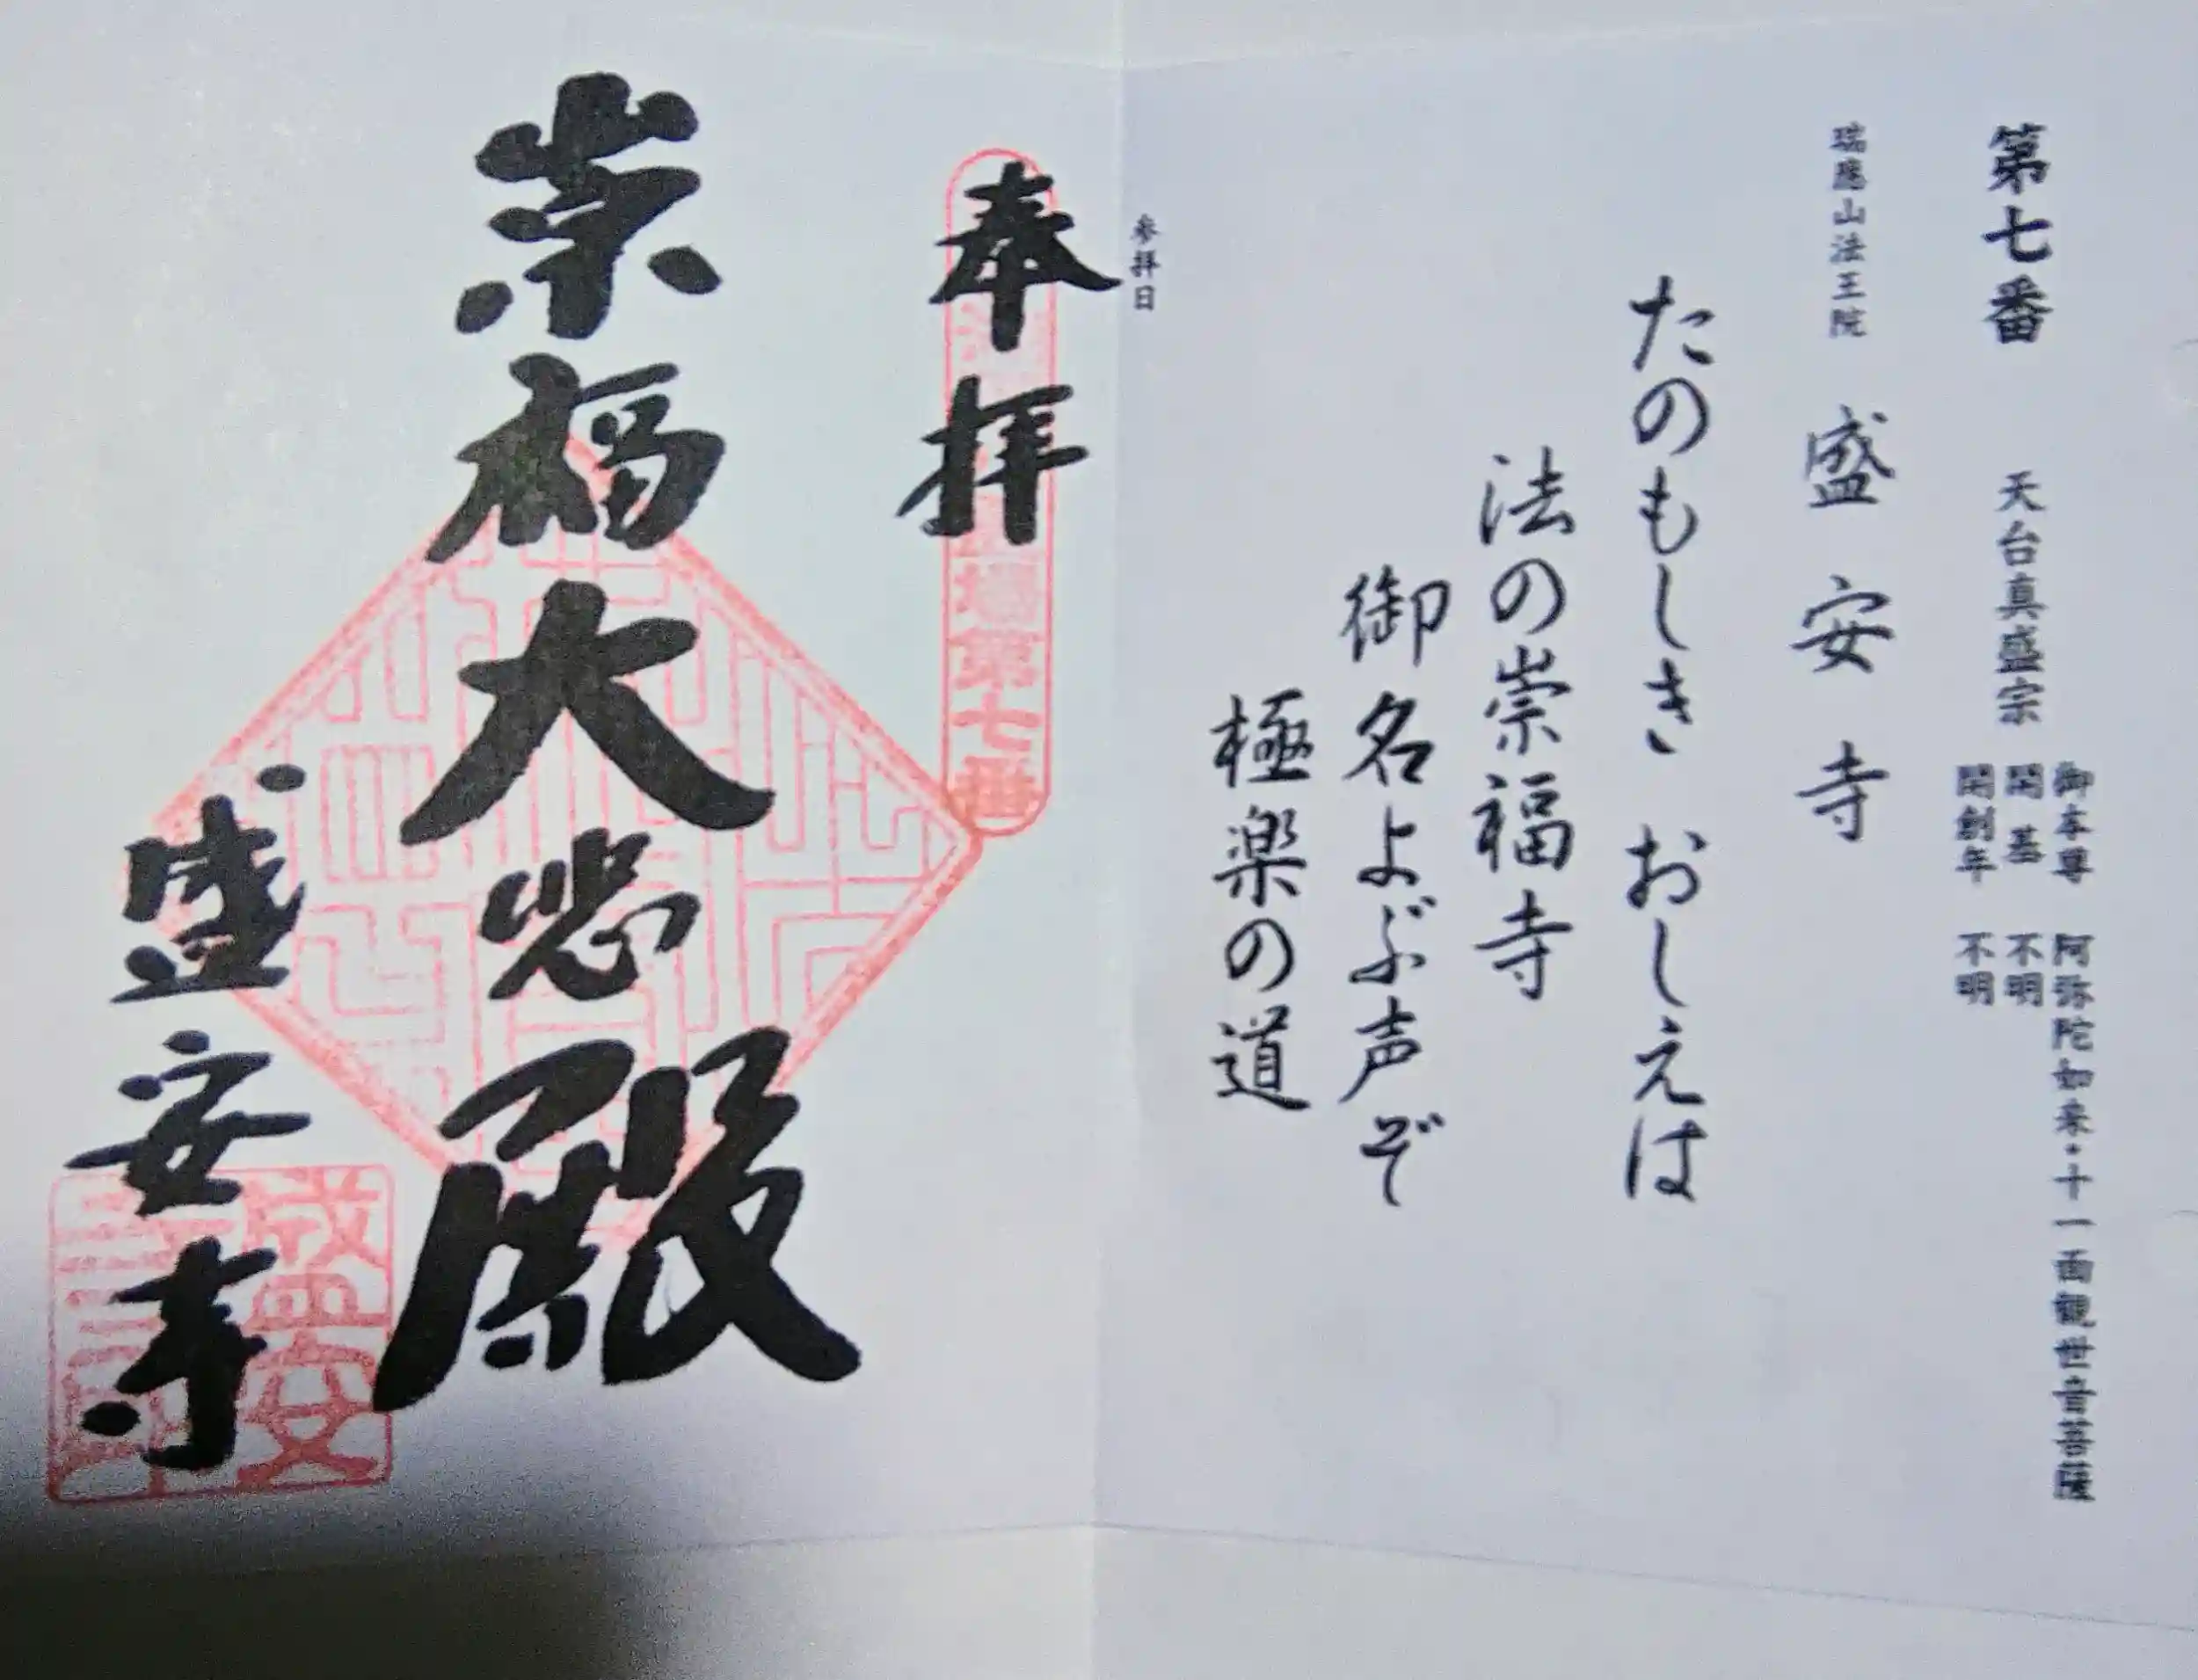 第七番 天台真盛宗
御本尊 阿弥陀如来・十一面観世音菩薩
開基 不明
開創年 不明
瑞應山法王院 盛安寺
たのもしき おしえは
法の崇福寺
御名よぶ声ぞ
極楽の道
参拝日
奉拝
場第七番
崇福大悲殿
盛安寺
盛安